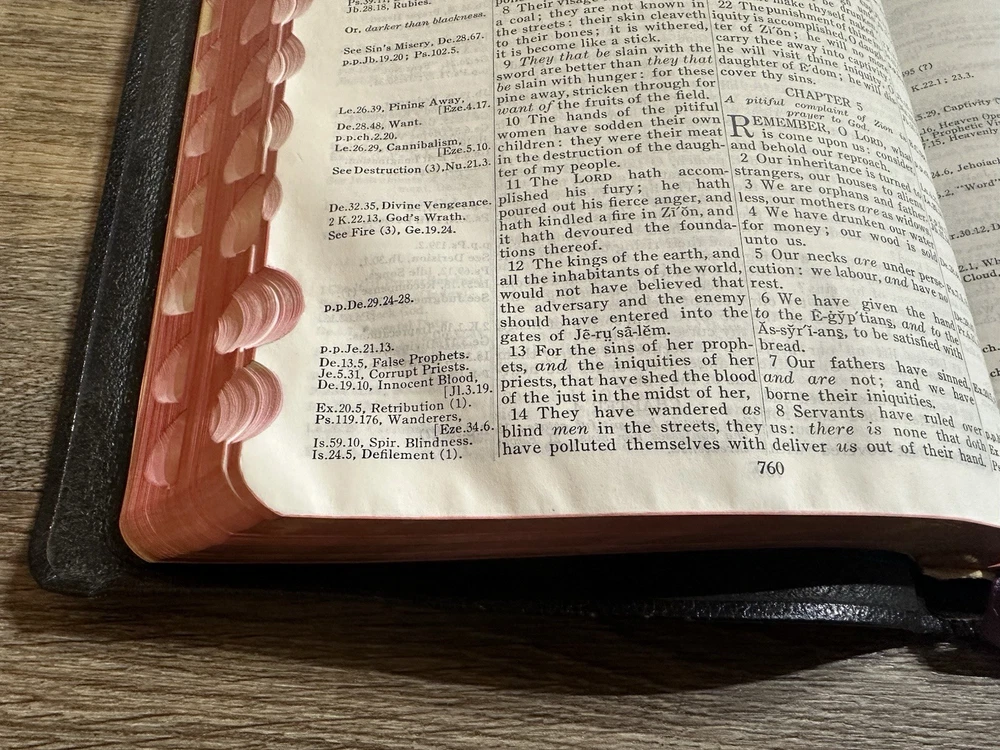 Jb.28.18, Rubies.
Or, darker than blackness.
See Sin's Misery, De.28.67.
p.p.Jb.19.20; Ps.102.5.
Le.26.39, Pining Away.
[Eze.4.17.
De.28.48, Want.
p.p.ch.2.20.
Le.26.29, Cannibalism.
[Eze.5.10.
See Destruction (3), Nu.21.3.
De.32.35, Divine Vengeance.
2 K.22.13, God's Wrath.
See Fire (3), Ge.19.24.
p.p.De.29.24-28.
p.p.Je.21.13.
De.13.5, False Prophets.
Je.5.31, Corrupt Priests.
De.19.10, Innocent Blood,
[Jl.3.19.
Ex.20.5, Retribution (1).
Ps.119.176, Wanderers,
[Eze.34.6.
Is.59.10, Spir. Blindness.
Is.24.5, Defilement (1).
8 Their visage
a coal; they are not known in
the streets: their skin cleaveth
to their bones; it is withered,
it is become like a stick.
9 They that be slain with the
sword are better than they that
be slain with hunger: for these
pine away, stricken through for
want of the fruits of the field.
10 The hands of the pitiful
women have sodden their own
children: they were their meat
in the destruction of the daugh-
ter of my people.
11 The LORD hath accom-
plished his fury; he hath
poured out his fierce anger, and
hath kindled a fire in Zī́ŏn, and
it hath devoured the founda-
tions thereof.
12 The kings of the earth, and
all the inhabitants of the world,
would not have believed that
the adversary and the enemy
should have entered into the
gates of Jē-rṳ́sā-lĕm.
13 For the sins of her proph-
ets, and the iniquities of her
priests, that have shed the blood
of the just in the midst of her,
14 They have wandered as
blind men in the streets, they
have polluted themselves with
22 The punishment of thine
iquity is accomplished, O daugh-
ter of Zī́ŏn;
carry thee away into
he will visit thine iniquity, O
daughter of Ḗdom; he will
cover thy sins.
CHAPTER 5
A pitiful complaint of Zion in
prayer to God.
REMEMBER, O LORD, what
is come upon us: consider,
and behold our reproach.
2 Our inheritance is turned to
strangers, our houses to aliens.
3 We are orphans and father-
less, our mothers are as widows.
4 We have drunken our water
for money; our wood is sold
unto us.
5 Our necks are under perse-
cution: we labour, and have no
rest.
6 We have given the hand
to the Ē-ġy̆ṕtians, and to the
Ăs-sy̆ŕi-anş, to be satisfied with
bread.
7 Our fathers have sinned,
and are not; and we have
borne their iniquities.
8 Servants have ruled over
us: there is none that doth
deliver us out of their hand.
760
K.22.1; 23.3.